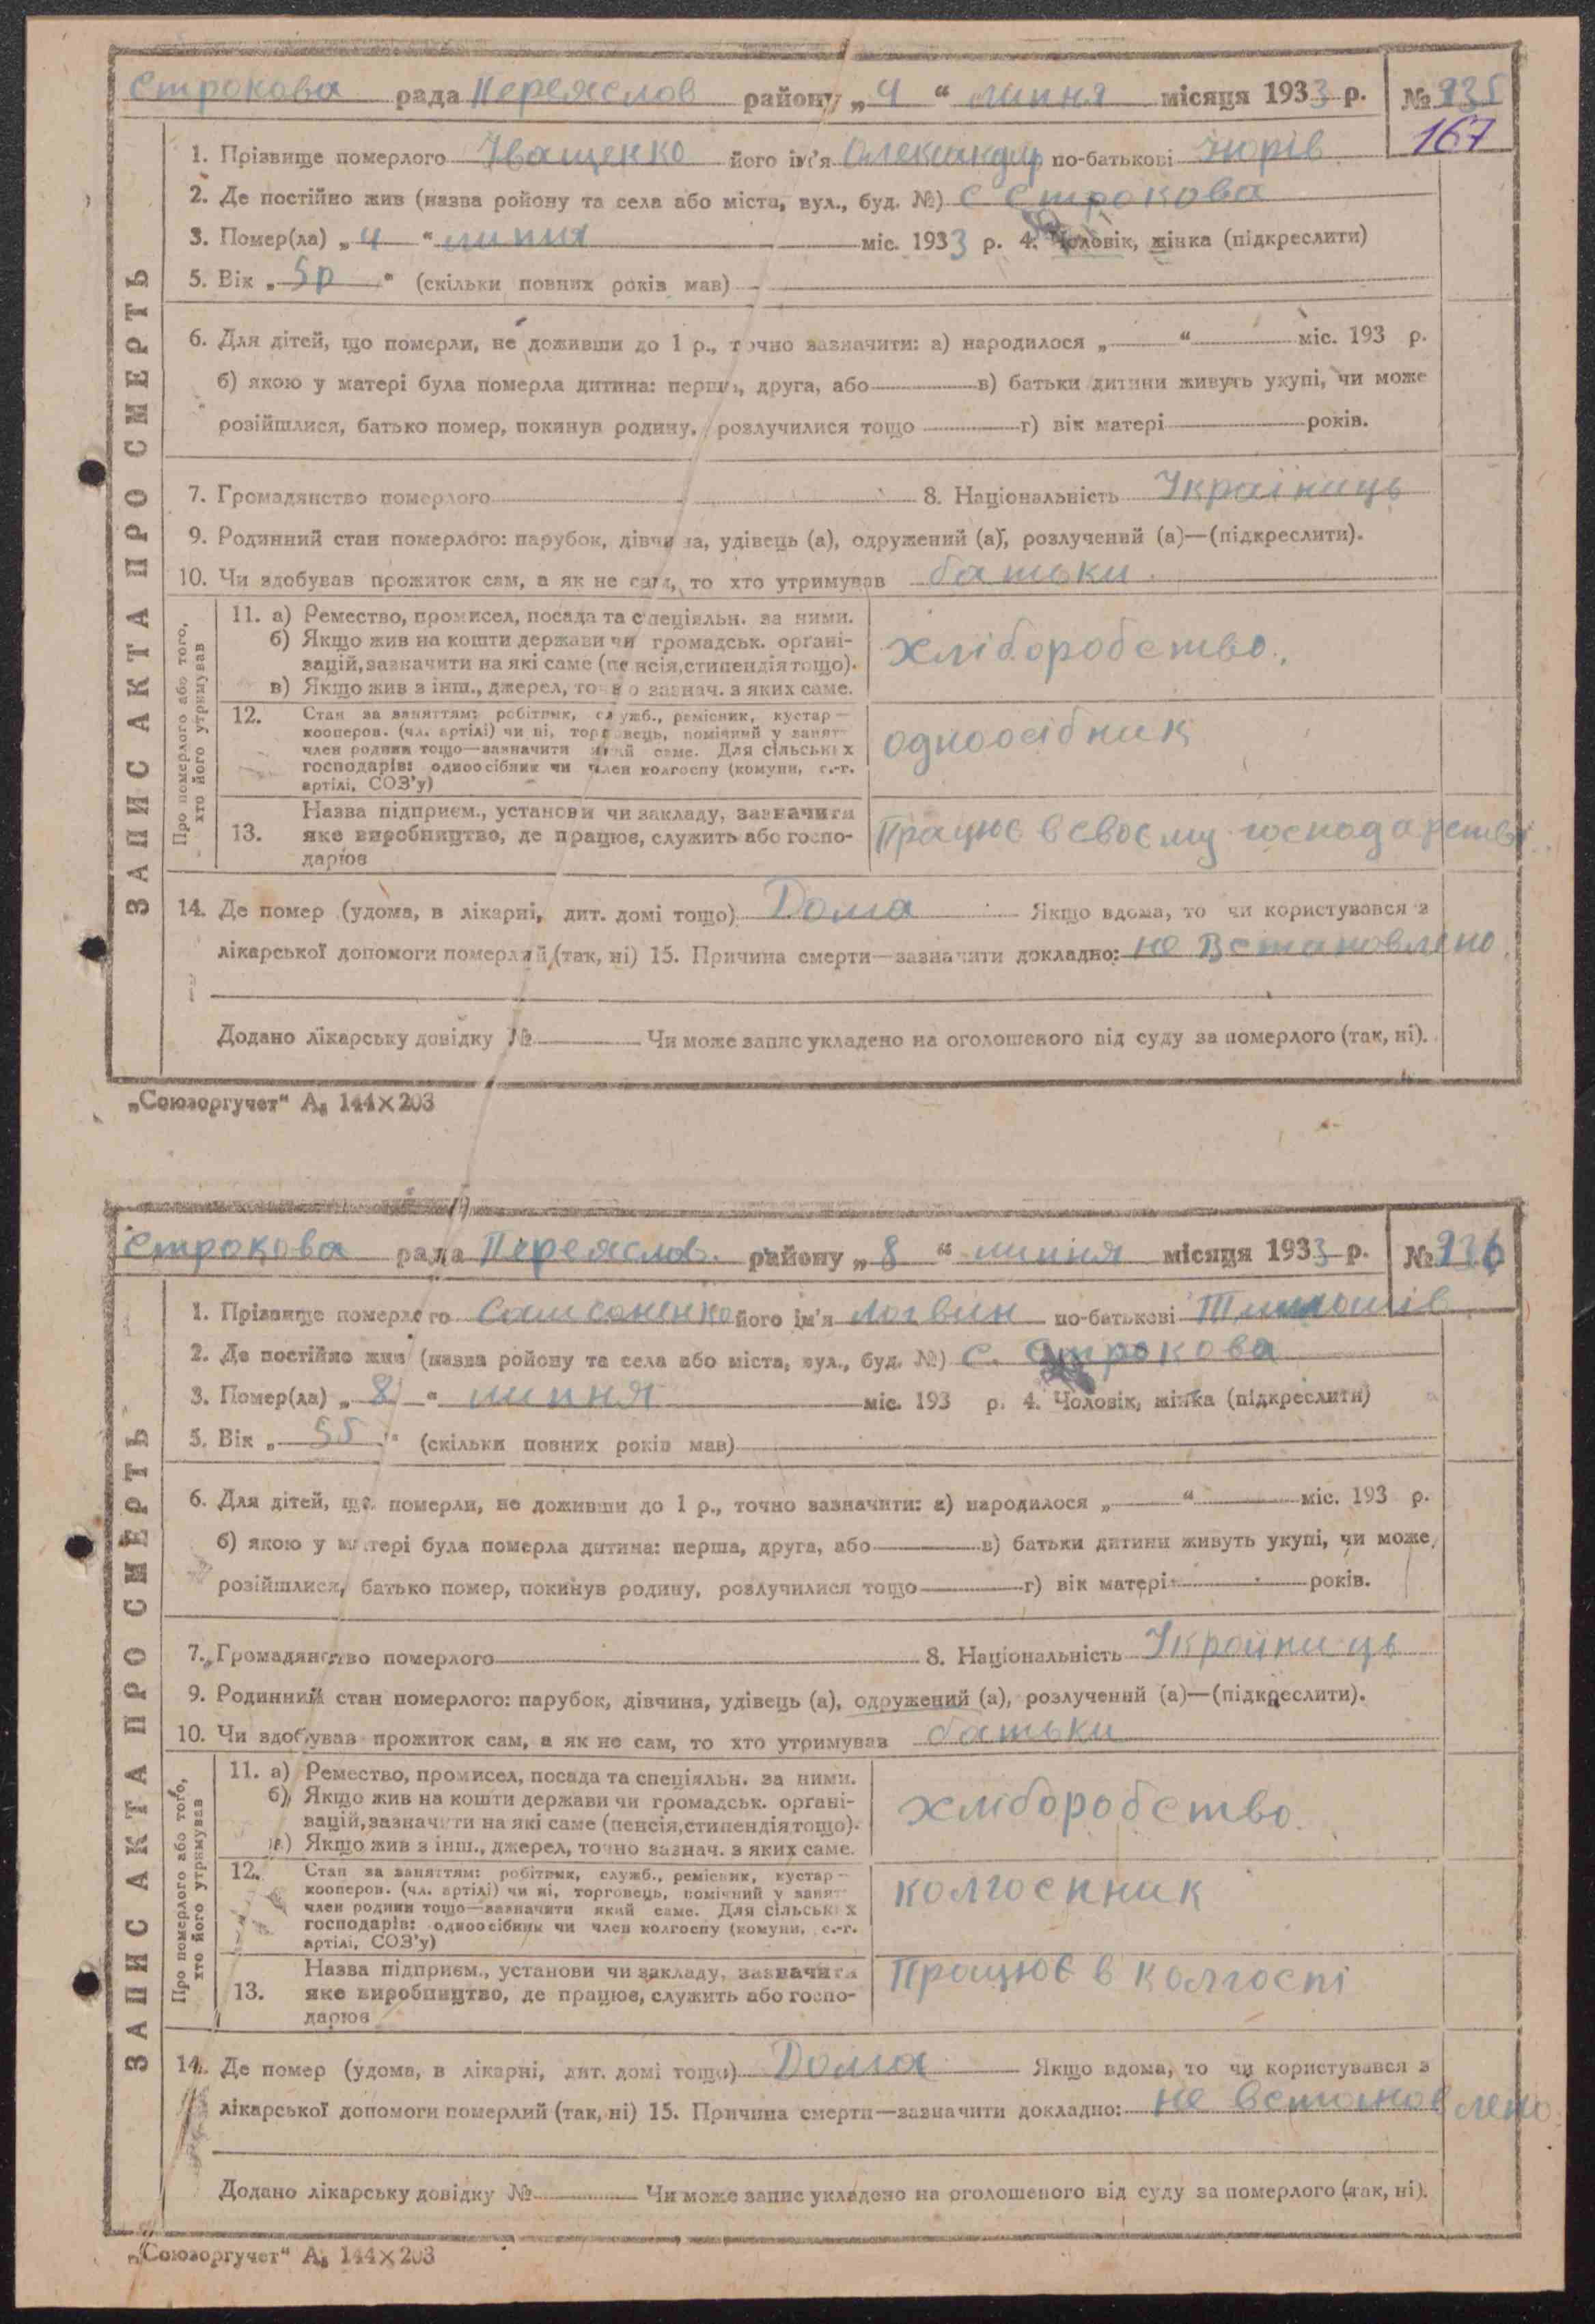 Строкова рада Переяслов району „4“ липня місяця 1933 р. № 235
167
ЗАПИС АКТА ПРО СМЕРТЬ
1. Прізвище померлого Іващенко його ім'я Олександр по-батькові Юрів
2. Де постійно жив (назва ройону та села або міста, вул., буд. №) с Строкова
3. Помер(ла) „4“ липня міс. 1933 р. 4. Чоловік, жінка (підкреслити)
5. Вік „5р“ (скільки повних років мав)
6. Для дітей, що померли, не доживши до 1 р., точно зазначити: а) народилося „ “ міс. 193 р.
б) якою у матері була померла дитина: перша, друга, або в) батьки дитини живуть укупі, чи може
розійшлися, батько помер, покинув родину, розлучилися тощо г) вік матері років.
7. Громадянство померлого 8. Національність Україниць
9. Родинний стан померлого: парубок, дівчина, удівець (а), одружений (а), розлучений (а)—(підкреслити).
10. Чи здобував прожиток сам, а як не сам, то хто утримував батьки
Про померлого або того, хто його утримував
11. а) Ремество, промисел, посада та спеціяльн. за ними.
б) Якщо жив на кошти держави чи громадськ. орґані-
зацій, зазначити на які саме (пенсія, стипендія тощо).
в) Якщо жив з інш., джерел, точно зазнач. з яких саме.
хліборобство.
12. Стан за заняттям: робітник, служб., ремісник, кустар—
кооперов. (чл. артілі) чи ні, торговець, помічний у занят—
член родини тощо—зазначити який саме. Для сільських
господарів: одноосібник чи член колгоспу (комуни, с.-г.
артілі, СОЗ'у)
одноосібник
13. Назва підприєм., установи чи закладу, зазначити
яке виробництво, де працює, служить або госпо-
дарює
Працює в своєму господарстві.
14. Де помер (удома, в лікарні, дит. домі тощо) Дома Якщо вдома, то чи користувався з
лікарської допомоги померлий (так, ні) 15. Причина смерти—зазначити докладно: не встановлено.
Додано лікарську довідку № Чи може запис укладено на оголошеного від суду за померлого (так, ні).
„Союзоргучет“ А₅ 144×203
Строкова рада Переяслов. району „8“ липня місяця 1933 р. № 236
ЗАПИС АКТА ПРО СМЕРТЬ
1. Прізвище померлого Самсоненко його ім'я Логвин по-батькові
2. Де постійно жив (назва ройону та села або міста, вул., буд. №) с. Строкова
3. Помер(ла) „8“ липня міс. 193 р. 4. Чоловік, жінка (підкреслити)
5. Вік „55“ (скільки повних років мав)
6. Для дітей, що померли, не доживши до 1 р., точно зазначити: а) народилося „ “ міс. 193 р.
б) якою у матері була померла дитина: перша, друга, або в) батьки дитини живуть укупі, чи може
розійшлися, батько помер, покинув родину, розлучилися тощо г) вік матері років.
7. Громадянство померлого 8. Національність Україниць
9. Родинний стан померлого: парубок, дівчина, удівець (а), одружений (а), розлучений (а)—(підкреслити).
10. Чи здобував прожиток сам, а як не сам, то хто утримував батьки
Про померлого або того, хто його утримував
11. а) Ремество, промисел, посада та спеціяльн. за ними.
б) Якщо жив на кошти держави чи громадськ. орґані-
зацій, зазначити на які саме (пенсія, стипендія тощо).
в) Якщо жив з інш., джерел, точно зазнач. з яких саме.
хліборобство.
12. Стан за заняттям: робітник, служб., ремісник, кустар—
кооперов. (чл. артілі) чи ні, торговець, помічний у занят—
член родини тощо—зазначити який саме. Для сільських
господарів: одноосібник чи член колгоспу (комуни, с.-г.
артілі, СОЗ'у)
колгоспник
13. Назва підприєм., установи чи закладу, зазначити
яке виробництво, де працює, служить або госпо-
дарює
Працює в колгоспі
14. Де помер (удома, в лікарні, дит. домі тощо) Дома Якщо вдома, то чи користувався з
лікарської допомоги померлий (так, ні) 15. Причина смерти—зазначити докладно: не встановлено
Додано лікарську довідку № Чи може запис укладено на оголошеного від суду за померлого (так, ні).
„Союзоргучет“ А₅ 144×203